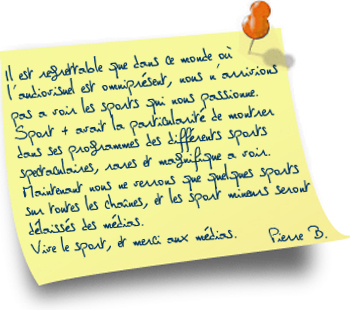 Il est regrettable que dans ce monde où
l'audiovisuel est omniprésent, nous n'arrivions
pas a voir les sports qui nous passionne.
Sport + avait la particularité de montrer
dans ses programmes des différents sports
spectaculaires, rares et magnifique a voir.
Maintenant nous ne verrons que quelques sports
sur toutes les chaînes, et les sport mineurs seront
délaissés des médias.
Vive le sport, et merci aux médias. Pierre B.